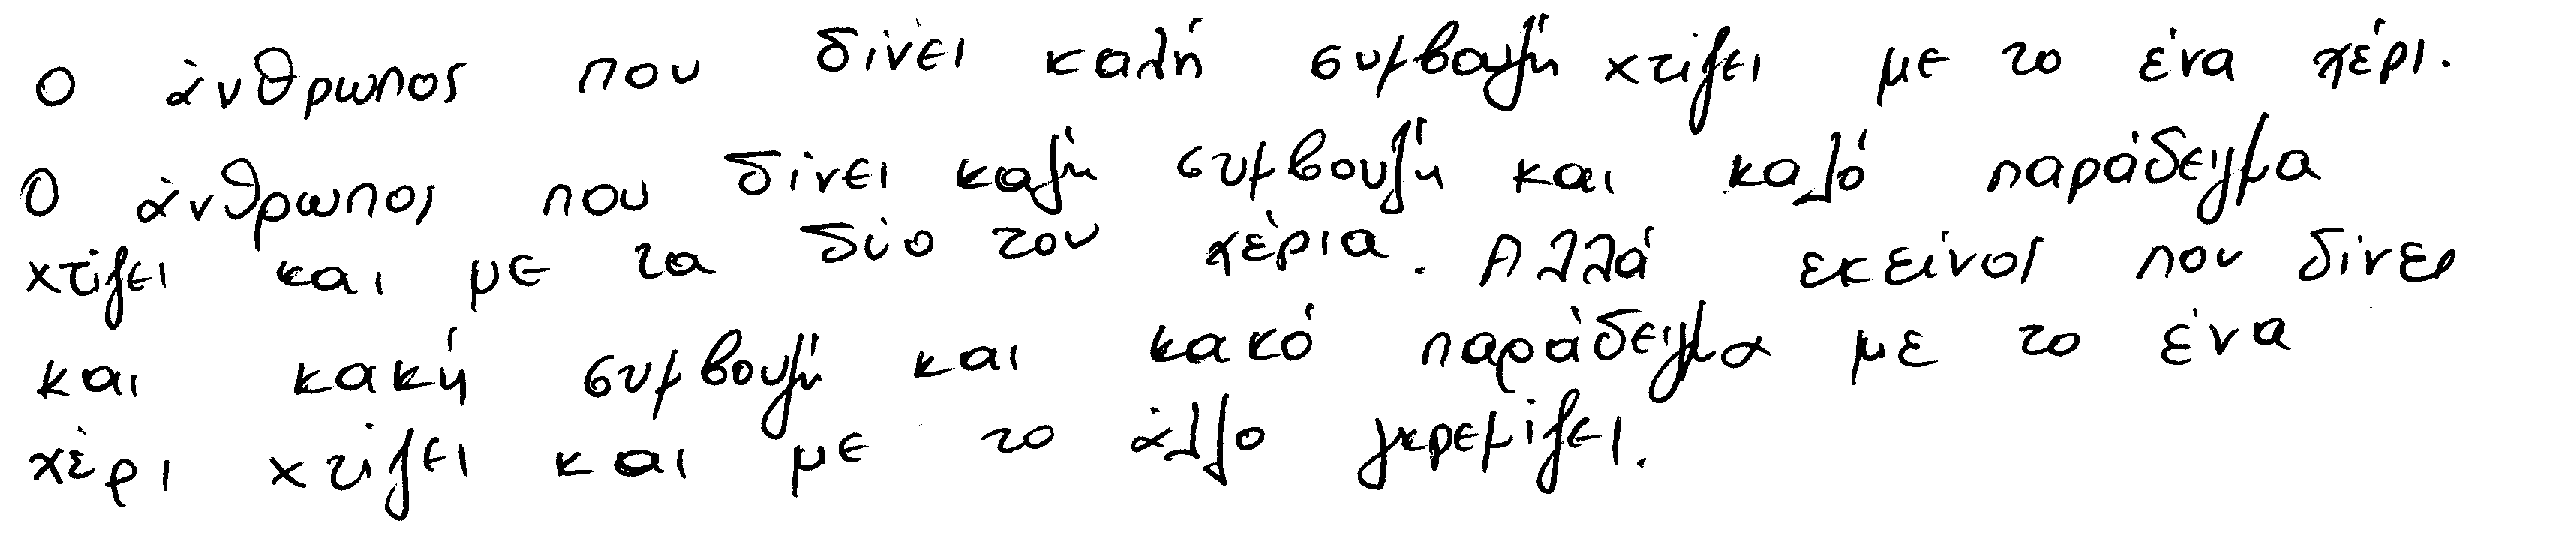 Ο άνθρωπος που δίνει καλή συμβουλή χτίζει με το ένα χέρι.
Ο άνθρωπος που δίνει καλή συμβουλή και καλό παράδειγμα
χτίζει και με τα δύο του χέρια. Αλλά εκείνος που δίνει
και κακή συμβουλή και κακό παράδειγμα με το ένα
χέρι χτίζει και με το άλλο γκρεμίζει.